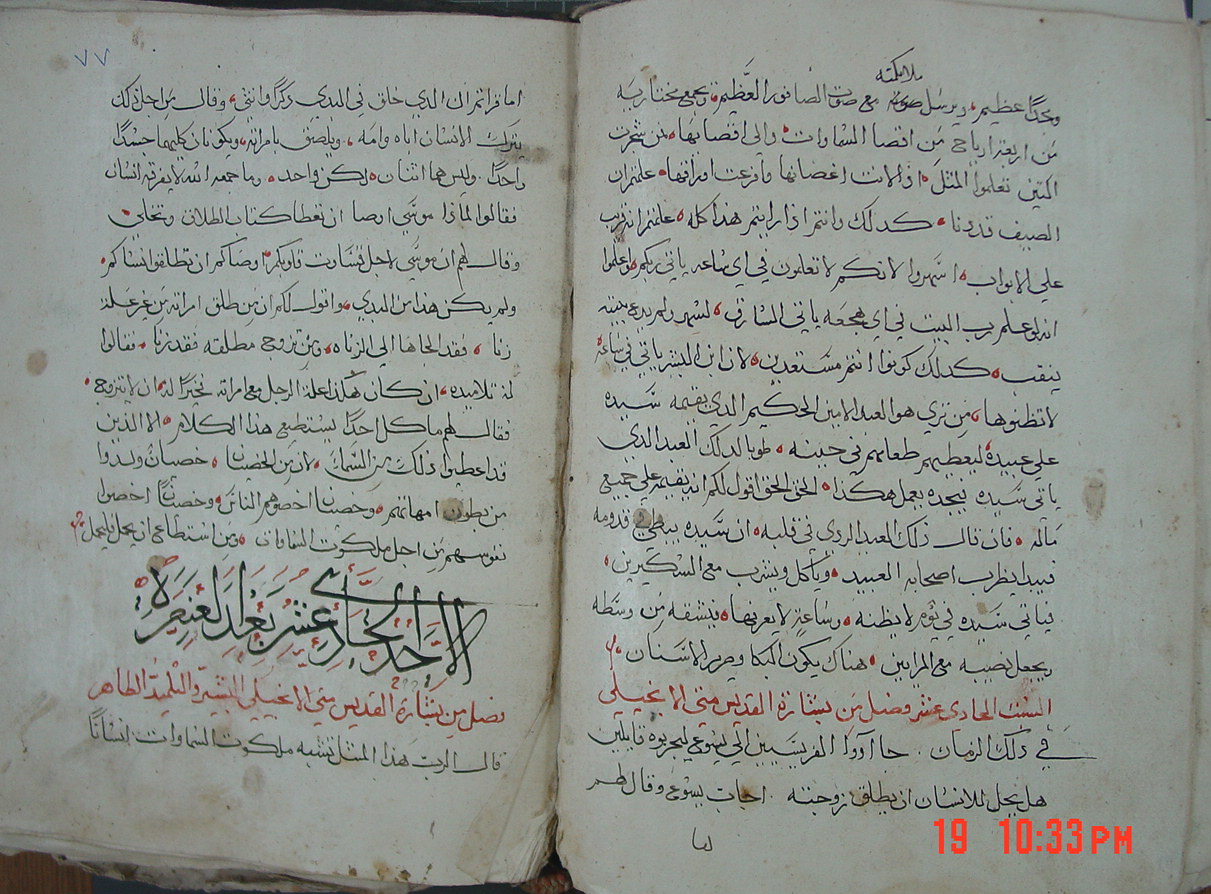 ملايكته
ومجدًا عظيم، ويرسل مع صوت الصافور العظيم، ويجمع مختاريه
من اربعة ارياح من اقصا السماوات والى اقصايها، من شجرت
التين تعلموا المثل، اذا لانت اغصانها وافرعت اوراقها، علمتم ان
الصيف قد دنا، كدلك وانتم اذا رايتم هذا كله، علمتم انه قريب
على الابواب، اسهروا لانكم لا تعلمون في اي ساعه ياتي ربكم، واعلموا
انه لو علم رب البيت في اي هجعه ياتي السارق، لسهر ولم يدع بيته
ينقب، كدلك كونوا انتم مستعدين، لان ابن البشر ياتي في ساعة
لا تظنوها، من تري هو العبد الامين الحكيم الدي يقيمه سيده
على عبيده، ليعطيهم طعامهم في حينه، طوبا لدلك العبد الدي
ياتي سيده فيجده يعمل هكذا، الحق الحق اقول لكم انه يقيمه على جميع
ماله، فان قال ذلك العبد الردي في قلبه، ان سيده يبطي قدومه
فيبدا يظرب اصحابه العبيد، وياكل ويشرب مع السكيرين،
فياتي سيده في يوم لا يظنه، وساعة لا يعرفها، فيشقه من وسطه
ويجعل نصيبه مع المرايين، هناك يكون البكا وصرير الاسنان،
السبت الحادي عشر فصل من بشارة القديس متى الانجيلي
في ذلك الزمان، جا اووا الفريسيين الى يسوع ليجربوه قايلين
هل يحل للانسان ان يطلق زوجته، اجاب يسوع وقال لهم
اما
٧٧
اما قراتم ان الدي خلق في البدي ذكرًا وانثى، وقال من اجل ذلك
يترك الانسان اباه وامه، ويلصق بامراته، ويكونان كليهما جسدًا
واحدًا. وليس هما اثنان، لكن واحد، وما جمعه الله لا يفرقه انسان
فقالوا لماذا موسى اوصا ان تعطا كتاب الطلاق وتخلى،
وقال لهم ان موسى لاجل قساوت قلوبكم، اوصاكم ان تطلقوا نساكم،
ولم يكن هذا من البدي، واقول لكم ان من طلق امراته من غير علة
زنا، فقد الجاها الى الزناه، ومن تزوج مطلقه فقد زنا، فقالوا
له تلاميده، ان كان هكذا علة الرجل مع امراته فخيرًا له، ان لا يتزوج،
فقال لهم ما كل احدًا يستطيع هذا الكلام، الا الذين
قد اعطيوا ذلك من السما، لان من الخصيان، خصيانٌ ولدوا
من بطون امهاتهم، وخصيانًا اخصوهم الناس، وخصيانًا اخصوا
نفوسهم من اجل ملكوت السماوات، ومن استطاع ان يحمل فليحمل،
الاحد الحادي عشر بعد العنصرة
فصل من بشارة القديس متى الانجيلي البشير والتلميذ الطاهر
قال الرب هذا المثل تشبه ملكوت السماوات انسانًا